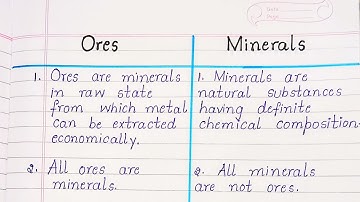 Ores
Minerals
1. Ores are minerals
in raw state
from which metal
can be extracted
economically.
2. All ores are
minerals.
1. Minerals are
natural substances
having definite
chemical composition.
2. All minerals
are not ores.